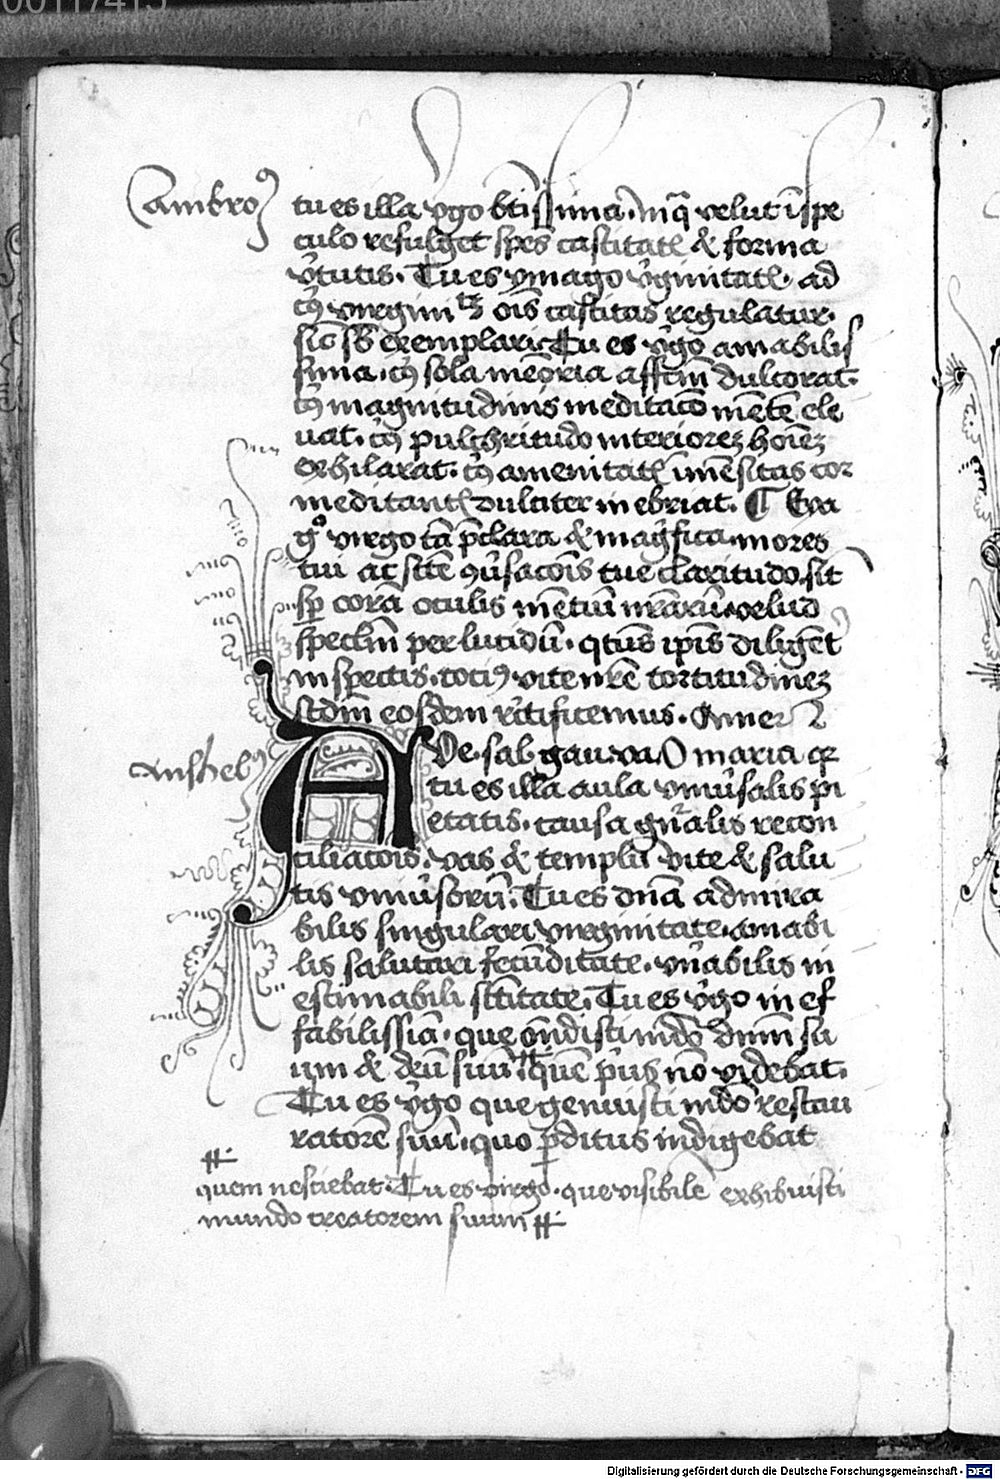 00117415
Ambro⁹
tu es illa v̓go bt̄issima. in q̄ velut ī spe
culo refulget spēs castitatꝭ & forma
v̓tutis. Tu es ymago v̓ginitatꝭ. ad
cꝰ virgini ois̄ castitas regulatur.
sic̄ sb̄ exemplari. Tu es v̓go amabilis
sima. cꝰ sola mēoria affcm̄ dulcorat.
cꝰ magnitudinis meditac̄o mētē ele
uat. cꝰ pulchritudo interiorez hoīez
exhilarat. cꝰ amenitatꝭ īmēsitas cor
meditantꝭ dulciter inebriat. ¶ Eya
gͦ virgo tā p̄clara & mag̓fica. mores
tui ac scē ꝯu̓sacōis tue claritudo sit
sp̄ corā oculis mētiū nr̄arū. velud
speclm̄ perlucidū. qtūs ip̄is diligent̓
inspectis. totiꝰ vite nr̄e tortitudinez
scdm̄ eosdem r̓tificemus. Amen
Anshelꝰ
AVe. sal. gau. va. O maria qꝛ
tu es illa aula vniu̓salis pi
etatis. causa gn̄alis recon
ciliacōis. vas & templū vite & salu
tis vniu̓sorū. Tu es dn̄a admira
bilis singulari virginitate. amabi
lis salutari fecūditate. vn̓abilis in
estimabili sc̄titate. Tu es v̓go inef
fabilissīa. que on̄disti mdō dnm̄ su
um & deū suū quē p̓us nō videbat.
Tu es v̓go que genuisti mdō restau
ratorē suū. quo ꝑditus indigebat
quem nesciebat. Tu es virgo. que visibilē exhibuisti
mundo creatorem suum
Digitalisierung gefördert durch die Deutsche Forschungsgemeinschaft - DFG